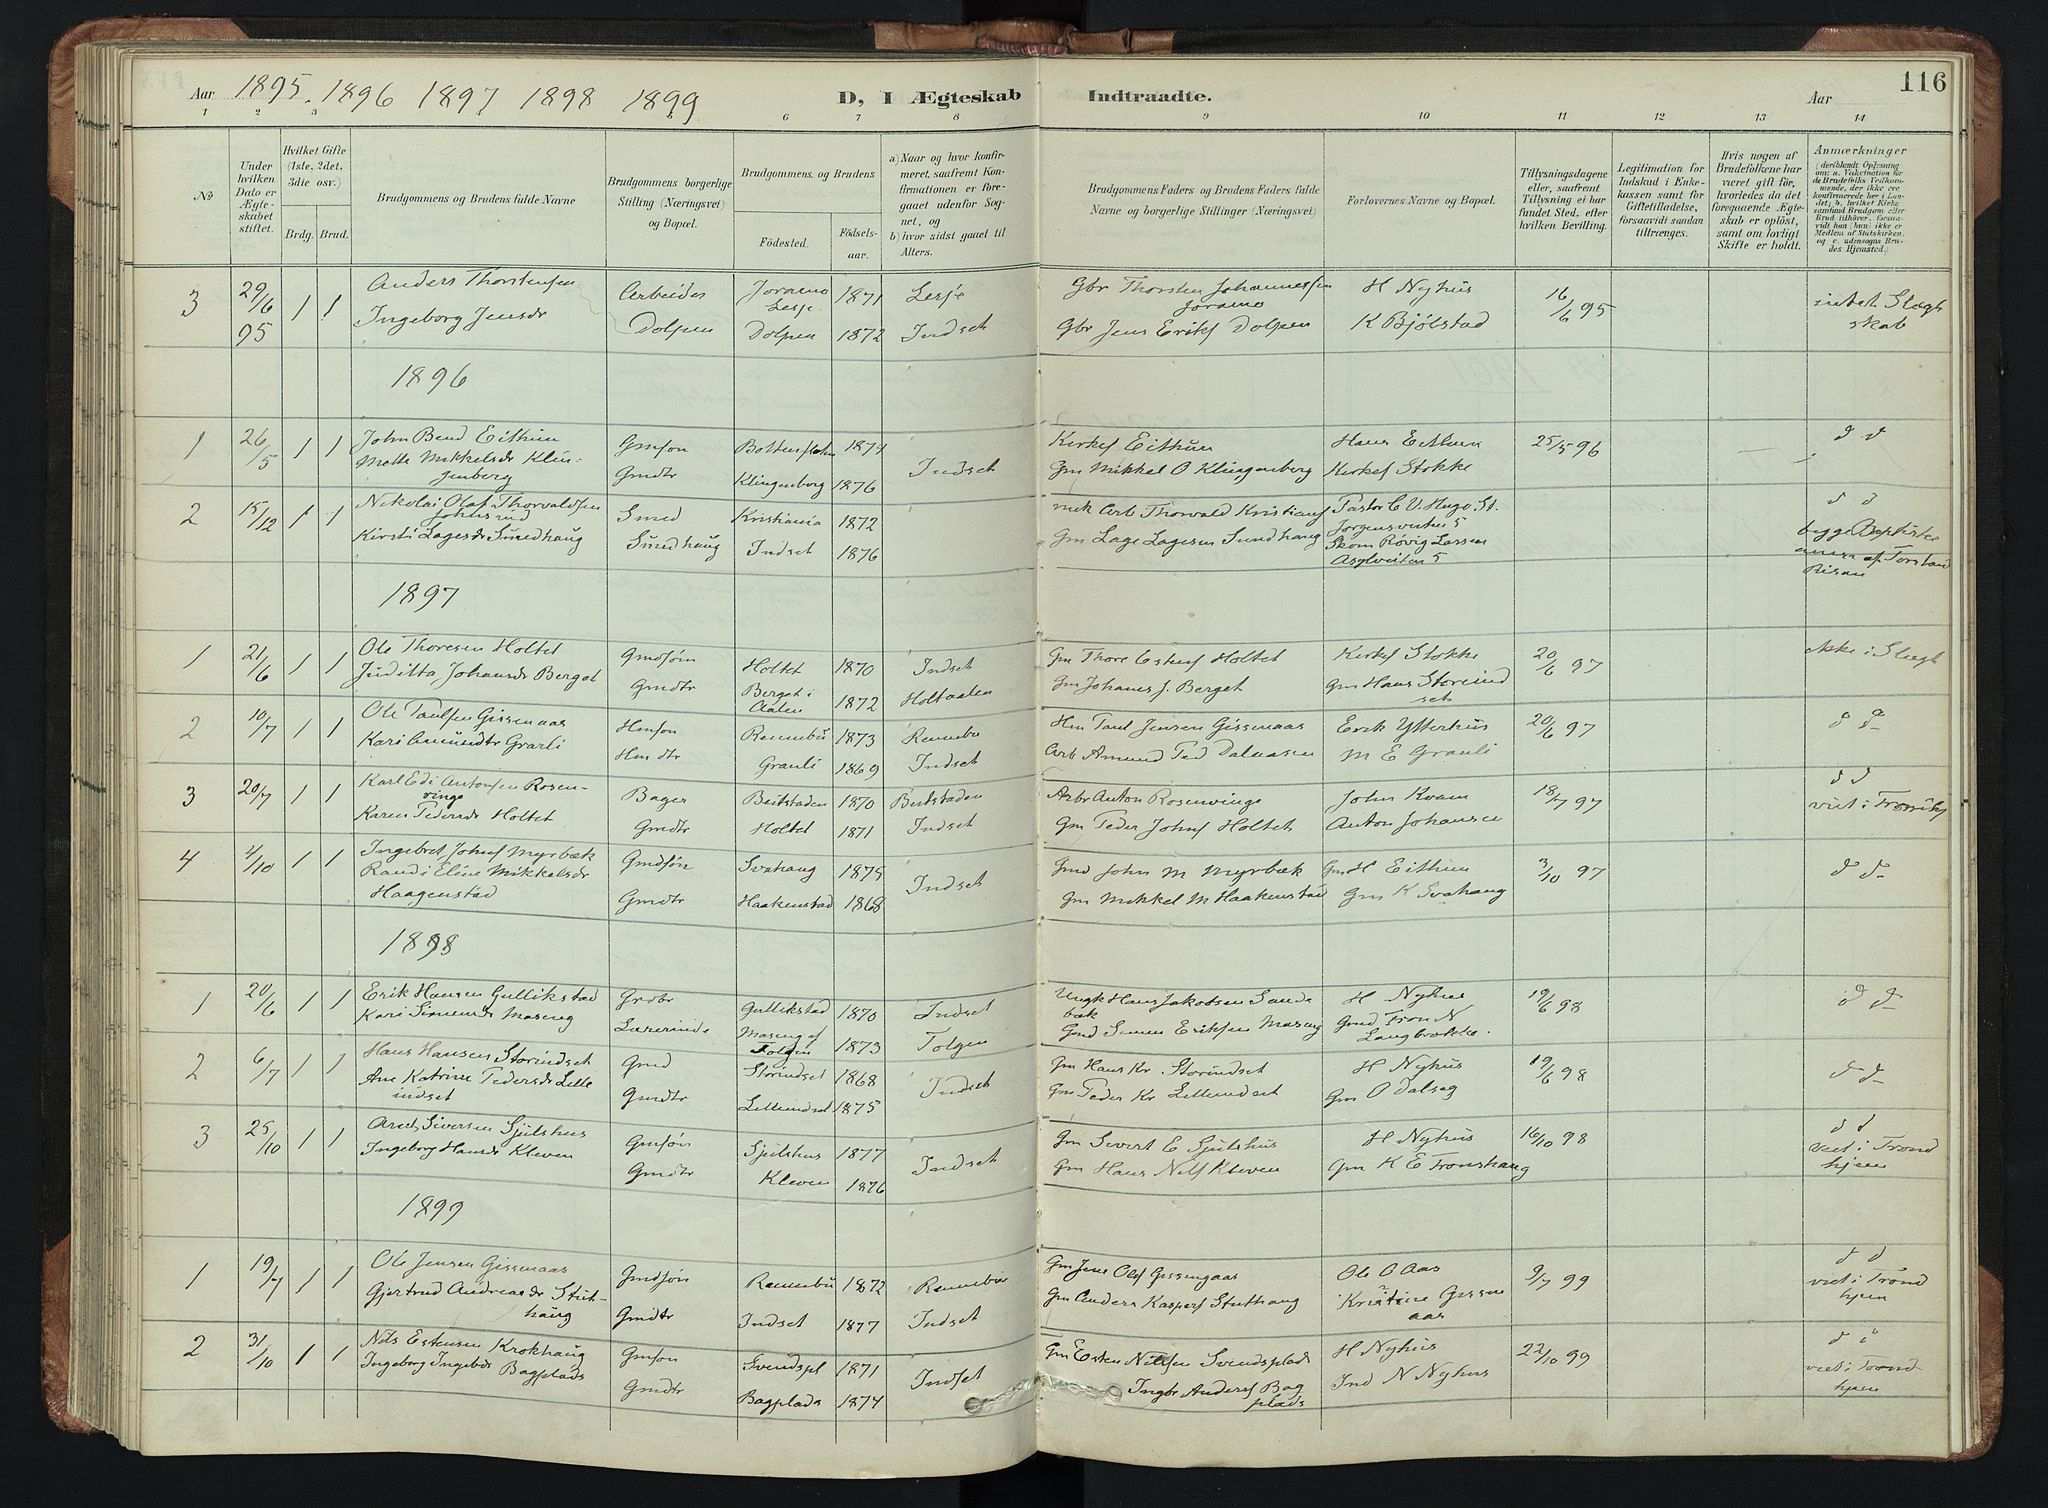 116
Aar 1895. 1896 1897 1898 1899 D, I Ægteskab Indtraadte. Aar
1 2 3 4 5 6 7 8 9 10 11 12 13 14
No
Under hvilken Dato er Ægteskabet stiftet.
Hvilket Gifte (1ste, 2det, 3die osv.)
Brdg. Brud.
Brudgommens og Brudens fulde Navne
Brudgommens borgerlige Stilling (Næringsvei) og Bopæl.
Brudgommens. og Brudens
Fødested. Fødselsaar.
a) Naar og hvor konfirmeret, saafremt Konfirmationen er foregaaet udenfor Sognet, og
b) hvor sidst gaaet til Alters.
Brudgommens Faders og Brudens Faders fulde Navne og borgerlige Stillinger (Næringsvei)
Forlovernes Navne og Bopæl.
Tillysningsdagene eller, saafremt Tillysning ei har fundet Sted, efter hvilken Bevilling.
Legitimation for Indskud i Enkekassen samt for Giftetilladelse, forsaavidt saadan tiltrænges.
Hvis nogen af Brudefolkene har været gift før, hvorledes da det foregaaende Ægteskab er opløst, samt om lovligt Skifte er holdt.
Anmærkninger
3 29/6 95 1 1 Anders Thorstensen Arbeider Joramo Lesje 1871 Lesje Gbr Thorsten Johannessen Joramo H Nyhus 16/6 95 intet Slægtskab
Ingeborg Jensdr Dolpen Dolpen 1872 Indset Gbr Jens Eriks Dolpen K Bjølstad
1896
1 26/5 1 1 John Bend Eithun Gmsøn 1874 Kirkes Eithun Hans Eithun 25/5 96 d d
Mette Mikkelsdr Klingenberg Gmdtr Klingenberg 1876 Indset Gm Mikkel O Klingenberg Kirkes Stokke
2 15/12 1 1 Nikolai Olaf Thorvaldsen Johnsrud Smed Kristiania 1872 Arb Thorvald Kristians Pastor C V Hugo St. Jorgensveiten 5 d d
Kirsti Lagesdr Smedhaug Smedhaug Indset 1876 Gm Lage Lagesen Smedhaug Skom Røvig Larsen Asylveiten 5 begge Baptister
1897
1 21/6 1 1 Ole Thoresen Holtet Gmdsøn Holtet 1870 Indset Gm Thore Estens Holtet Kirkes Stokke 20/6 97 ikke i Slægt
Juditta Johansdr Berget Gmdtr Berget i Aalen 1872 Holtaalen Gm Johanes J. Berget Gm Hans Storindset
2 10/7 1 1 Ole Paulsen Gissenaas Hmsøn Rennebu 1873 Rennebu Hm Paul Jensen Gissenaas Erik Ytterhus 20/6 97 d d
Kari Amundtr Granli Hmdtr Granli 1869 Indset Arb Amund Ped Dalaasen M E Granli
3 20/7 1 1 Karl Edv Antonsen Rosenvinge Bager Beitstaden 1870 Beitstaden Arbr Anton Rosenvinge John Kvam 18/7 97 d d
Karen Pedersdr Holtet Gmdtr Holtet 1871 Indset Gm Peder Johns Holtet Anton Johansen
4 4/10 1 1 Ingebret Johns Myrbæk Gmdsøn Svahaug 1875 Indset Gmd John M Myrbæk Gm H Eithun 3/10 97 d d
Randi Eline Mikkelsdr Haagenstad Gmdtr Haakenstad 1868 Gm Mikkel M Haakenstad Gm K Svahaug
1898
1 20/6 1 1 Erik Hansen Gullikstad Grdbr Gullikstad 1870 Indset Ungk Hans Jakobsen Sandebæk H Nyhus 19/6 98 d d
Kari Simensdr Maseng Lærerinde Maseng af Tolgen 1873 Tolgen Gmd Simen Eriksen Maseng Gmd Tron N Langbrække.
2 6/7 1 1 Hans Hansen Storindset Gmd Storindset 1868 Indset Gm Hans Kr. Storindset H Nyhus 19/6 98 d d
Ane Katrine Pedersdr Lilleindset Gmdtr Lilleindset 1875 Gm Peder Kr Lilleindset Gm O Dalseg
3 25/10 1 1 Arnt Siversen Sjulshus Gmsøn Sjulshus 1877 Indset Gm Sivert E Sjulshus H Nyhus 16/10 98 d d
Ingeborg Hansdr Kleven Gmdtr Kleven 1876 Gm Hans Nils Kleven Gm K E Tronshaug viet i Trondhjem
1899
1 19/7 1 1 Ole Jensen Gissenaas Gmdsøn Rennebu 1872 Rennebu Gm Jens Ols Gissengaas Ole O Aas 9/7 99 d d
Gjertrud Andreasdr Stuthaug Gmdtr Indset 1877 Indset Gm Anders Kaspers Stuthaug Kristine Gissenaas viet i Trondhjem
2 31/10 1 1 Nils Estensen Krokhaug Gmsøn Svendspl 1871 Indset Gm Esten Nilsen Svendsplads H Nyhus 22/10 99 d d
Ingeborg Ingebrdr Bagplads Gmdtr Bagplads 1874 Ingbr Anders Bagplads Ind N Nyhus viet i Trondhjem